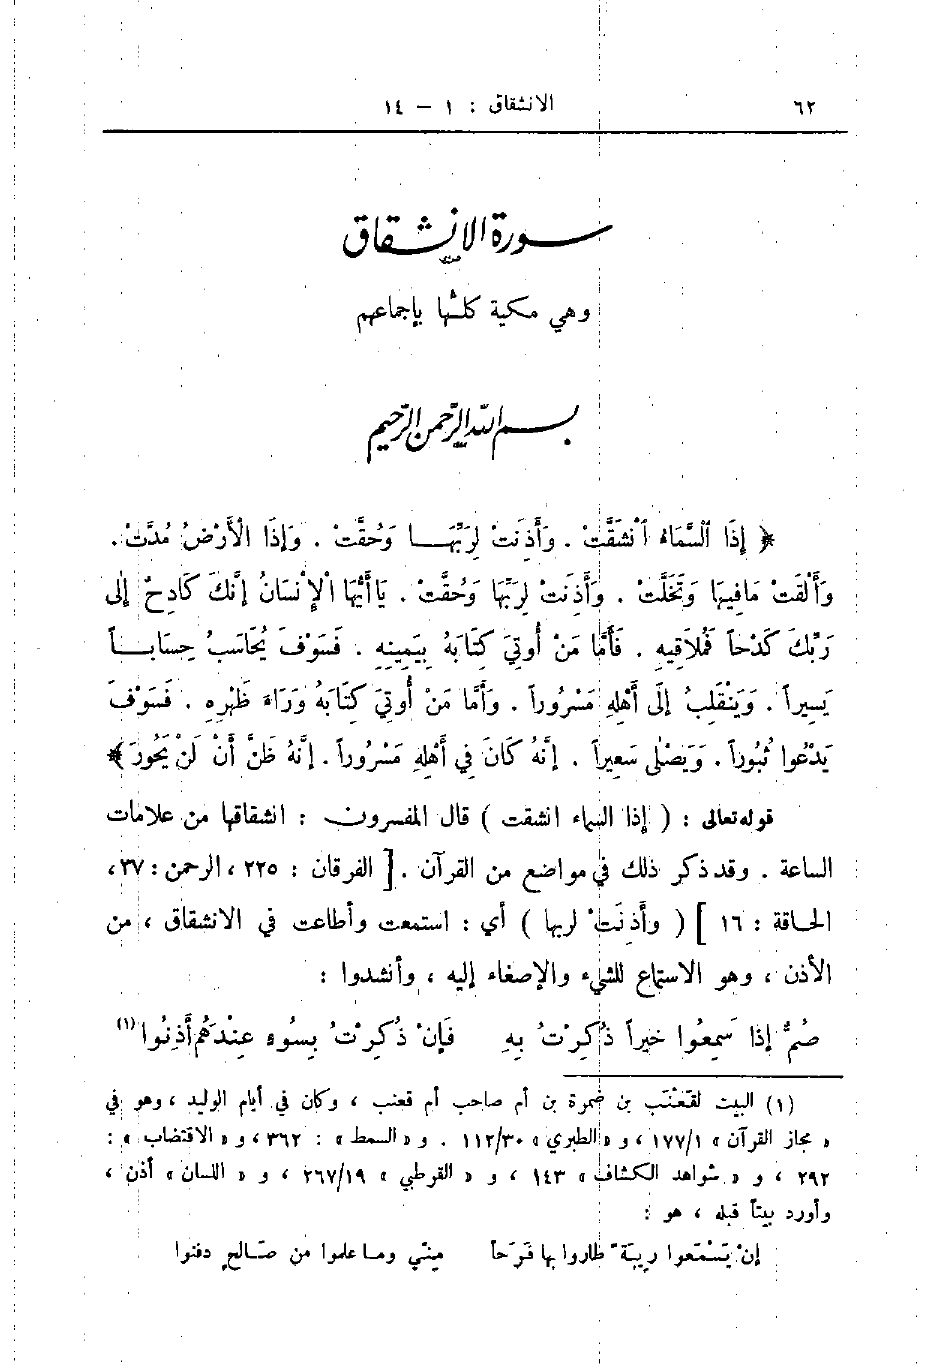 ٦٢
الانشقاق : ١ – ١٤
سورة الإنشقاق
وهي مكية كلُّها بإجماعهم
بسم الله الرحمن الرحيم
﴿ إِذَا ٱلسَّمَاءُ ٱنْشَقَّتْ . وَأَذِنَتْ لِرَبِّهَا وَحُقَّتْ . وَإِذَا الْأَرْضُ مُدَّتْ .
وَأَلْقَتْ مَافِيهَا وَتَخَلَّتْ . وَأَذِنَتْ لِرَبِّهَا وَحُقَّتْ . يَاأَيُّهَا الْإِنْسَانُ إِنَّكَ كَادِحٌ إِلَى
رَبِّكَ كَدْحاً فَمُلَاقِيهِ . فَأَمَّا مَنْ أُوتِيَ كِتَابَهُ بِيَمِينِهِ . فَسَوْفَ يُحَاسَبُ حِسَاباً
يَسِيراً . وَيَنْقَلِبُ إِلَى أَهْلِهِ مَسْرُوراً . وَأَمَّا مَنْ أُوتِيَ كِتَابَهُ وَرَاءَ ظَهْرِهِ . فَسَوْفَ
يَدْعُوا ثُبُوراً . وَيَصْلَى سَعِيراً . إِنَّهُ كَانَ فِي أَهْلِهِ مَسْرُوراً . إِنَّهُ ظَنَّ أَنْ لَنْ يَحُورَ ﴾
قوله تعالى : ( إذا السماء انشقت ) قال المفسرون : انشقاقها من علامات
الساعة . وقد ذكر ذلك في مواضع من القرآن . [ الفرقان : ٢٢٥ ، الرحمن : ٣٧ ،
الحاقة : ١٦ ] ( وأَذِنَتْ لربها ) أي : استمعت وأطاعت في الانشقاق ، من
الأذن ، وهو الاستماع للشيء والإصغاء إليه ، وأنشدوا :
صُمٌّ إِذا سَمِعُوا خيراً ذُكِرْتُ بِهِ فَإِنْ ذُكِرْتُ بِسُوءٍ عِنْدَهُم أَذِنُوا (١)
(١) البيت لقَعْنَب بن ضمرة بن أم صاحب أم قعنب ، وكان في أيام الوليد ، وهو في
« مجاز القرآن » ١٧٧/١ ، و « الطبري » ١١٢/٣٠ . و « السمط » : ٣٦٢ ، و « الاقتضاب » :
٢٩٢ ، و « شواهد الكشاف » ١٤٣ ، و « القرطبي » ٢٦٧/١٩ ، و « اللسان » أذن ،
وأورد بيتاً قبله ، هو :
إنْ يَسْمَعوا ريبَةً طاروا بها فَرَحاً مِنّي وما علموا من صَالحٍ دفنوا